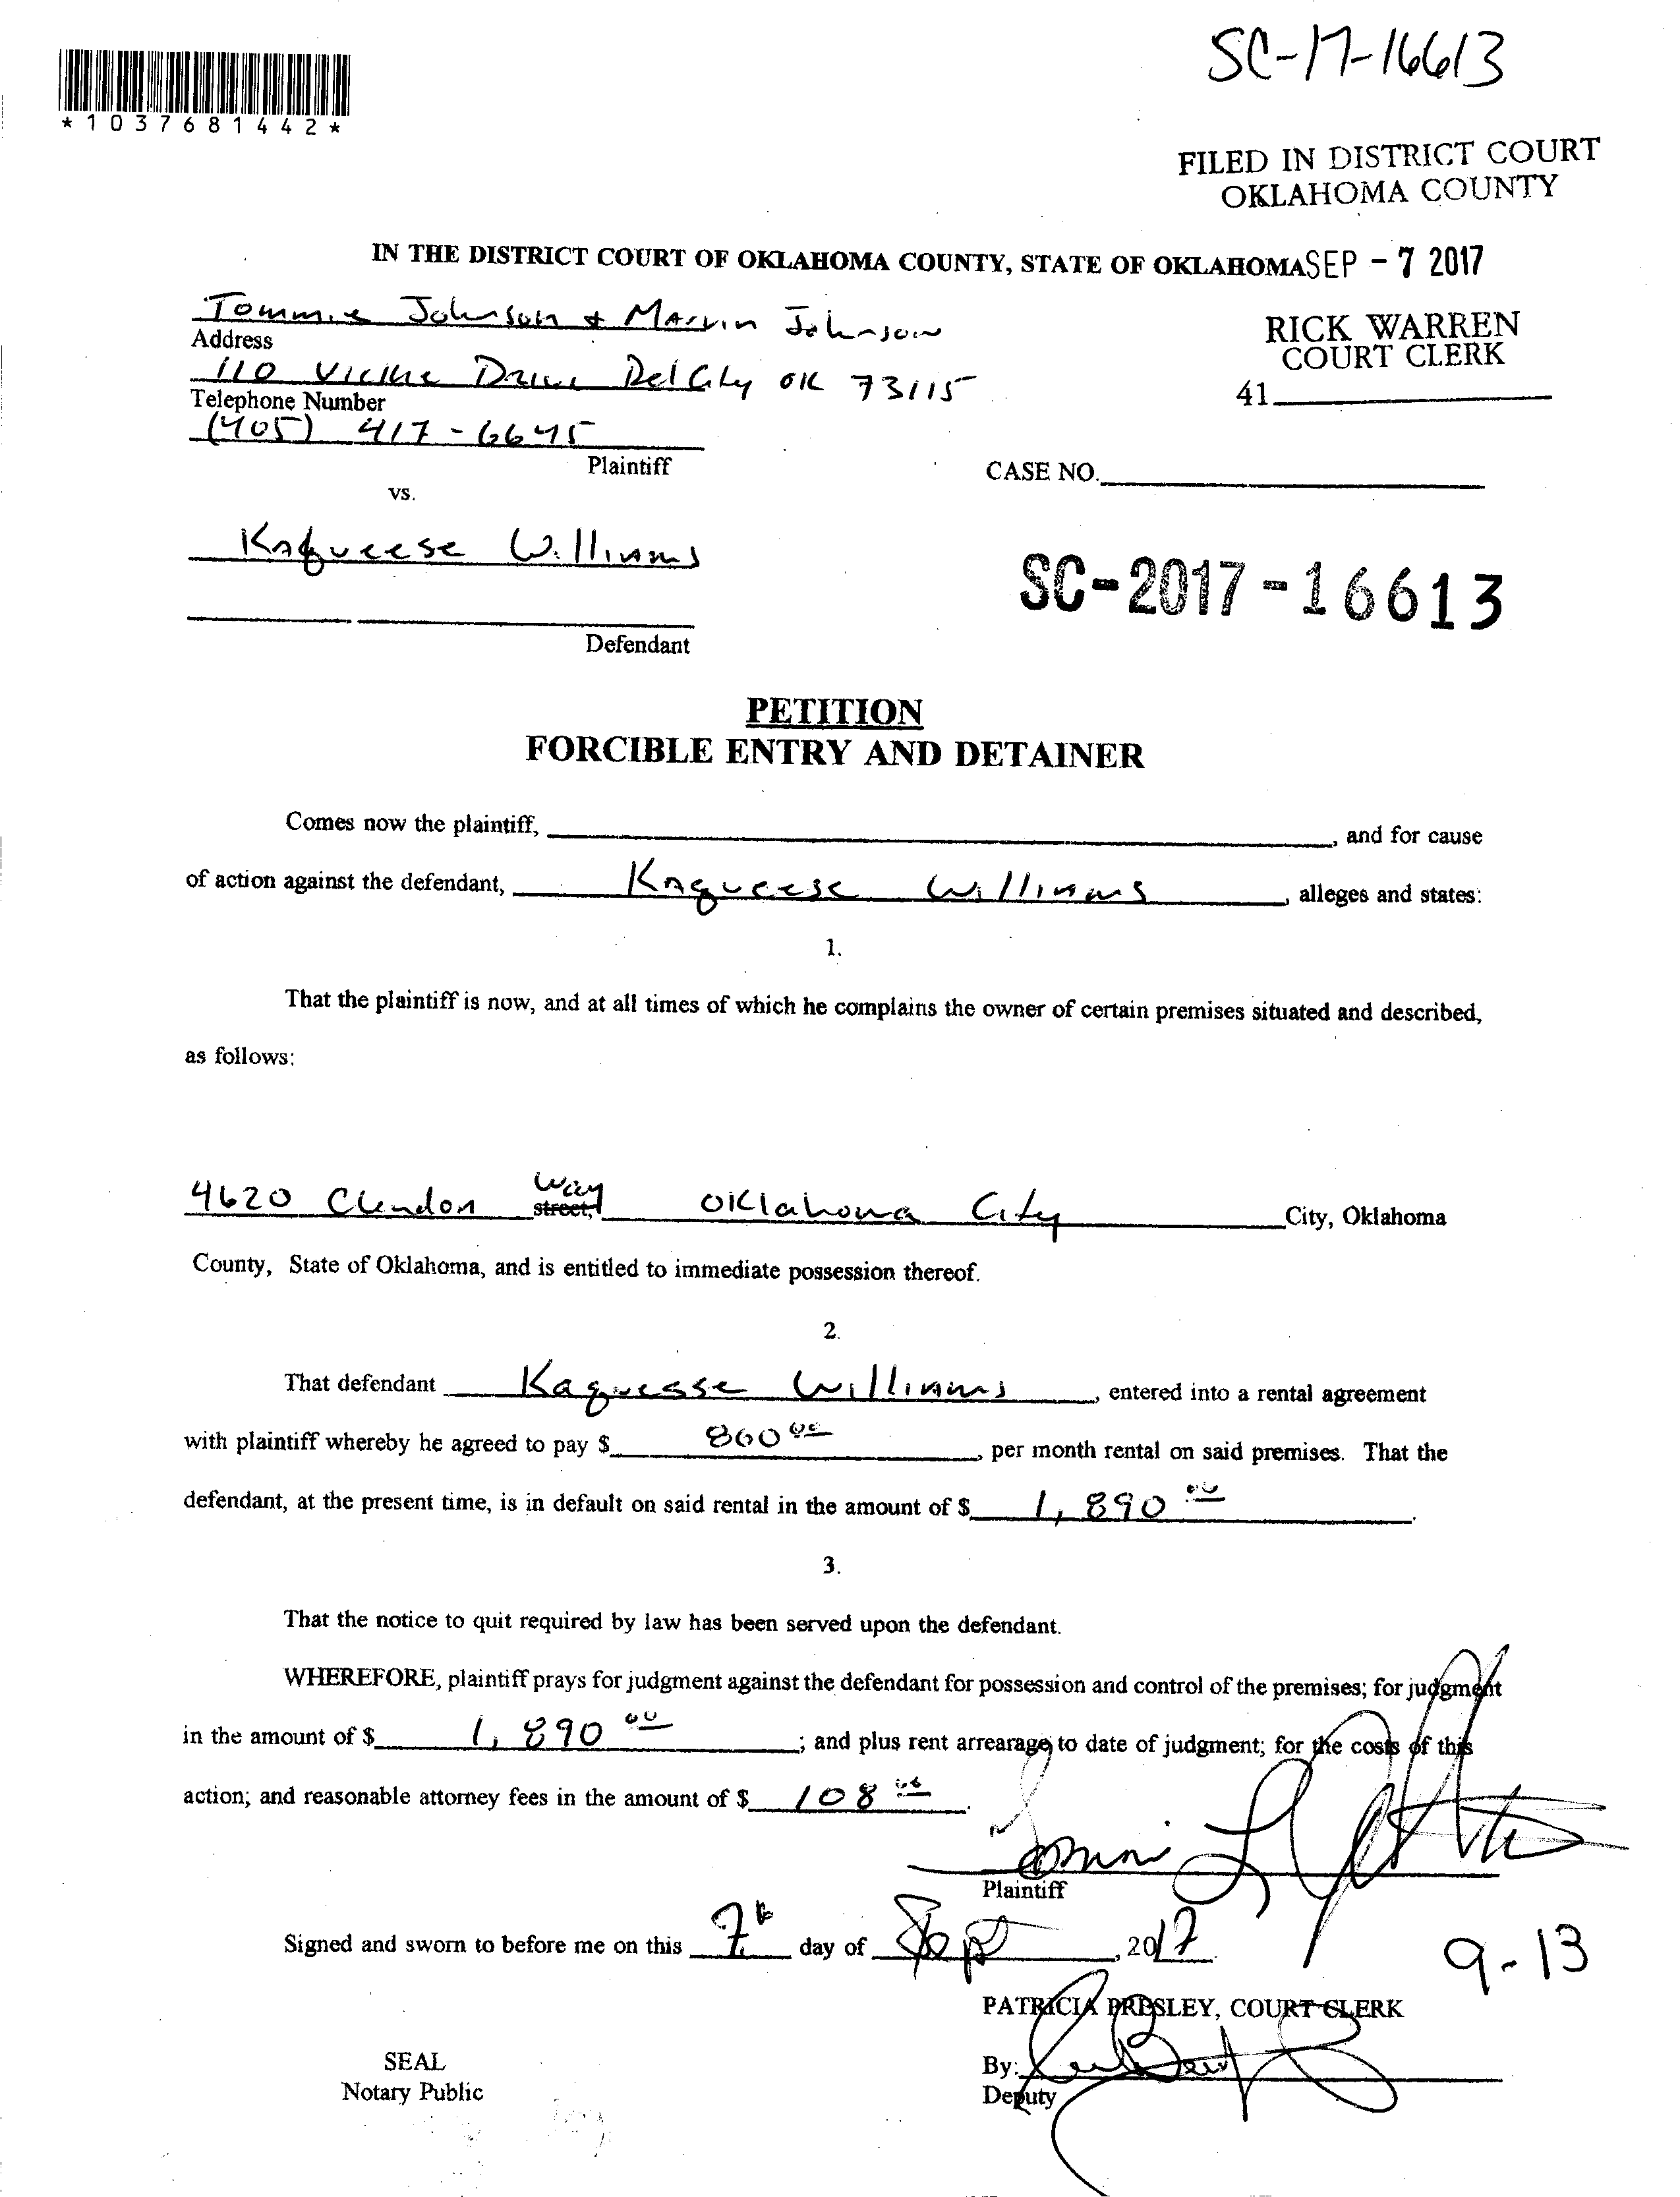 SC-17-16613
*1037681442*
FILED IN DISTRICT COURT
OKLAHOMA COUNTY
IN THE DISTRICT COURT OF OKLAHOMA COUNTY, STATE OF OKLAHOMA SEP - 7 2017
Tommie Johnson & Marvin Johnson
Address
RICK WARREN
COURT CLERK
110 Vickie Drive Del City OK 73115
41
Telephone Number
(405) 417-6645
Plaintiff
CASE NO.
vs.
Kaqueese Williams
SC-2017-16613
Defendant
PETITION
FORCIBLE ENTRY AND DETAINER
Comes now the plaintiff, , and for cause
of action against the defendant, Kaqueese Williams, alleges and states:
1.
That the plaintiff is now, and at all times of which he complains the owner of certain premises situated and described,
as follows:
4620 Clendon street, Way Oklahoma City City, Oklahoma
County, State of Oklahoma, and is entitled to immediate possession thereof.
2.
That defendant Kaquesse Williams, entered into a rental agreement
with plaintiff whereby he agreed to pay $ 860 00, per month rental on said premises. That the
defendant, at the present time, is in default on said rental in the amount of $ 1,890 00.
3.
That the notice to quit required by law has been served upon the defendant.
WHEREFORE, plaintiff prays for judgment against the defendant for possession and control of the premises; for judgment
in the amount of $ 1,890 00; and plus rent arrearage to date of judgment; for the costs of this
action; and reasonable attorney fees in the amount of $ 108 00.
Plaintiff
Signed and sworn to before me on this 7th day of Sept, 2017.
9-13
PATRICIA PRESLEY, COURT CLERK
SEAL
By:
Notary Public
Deputy